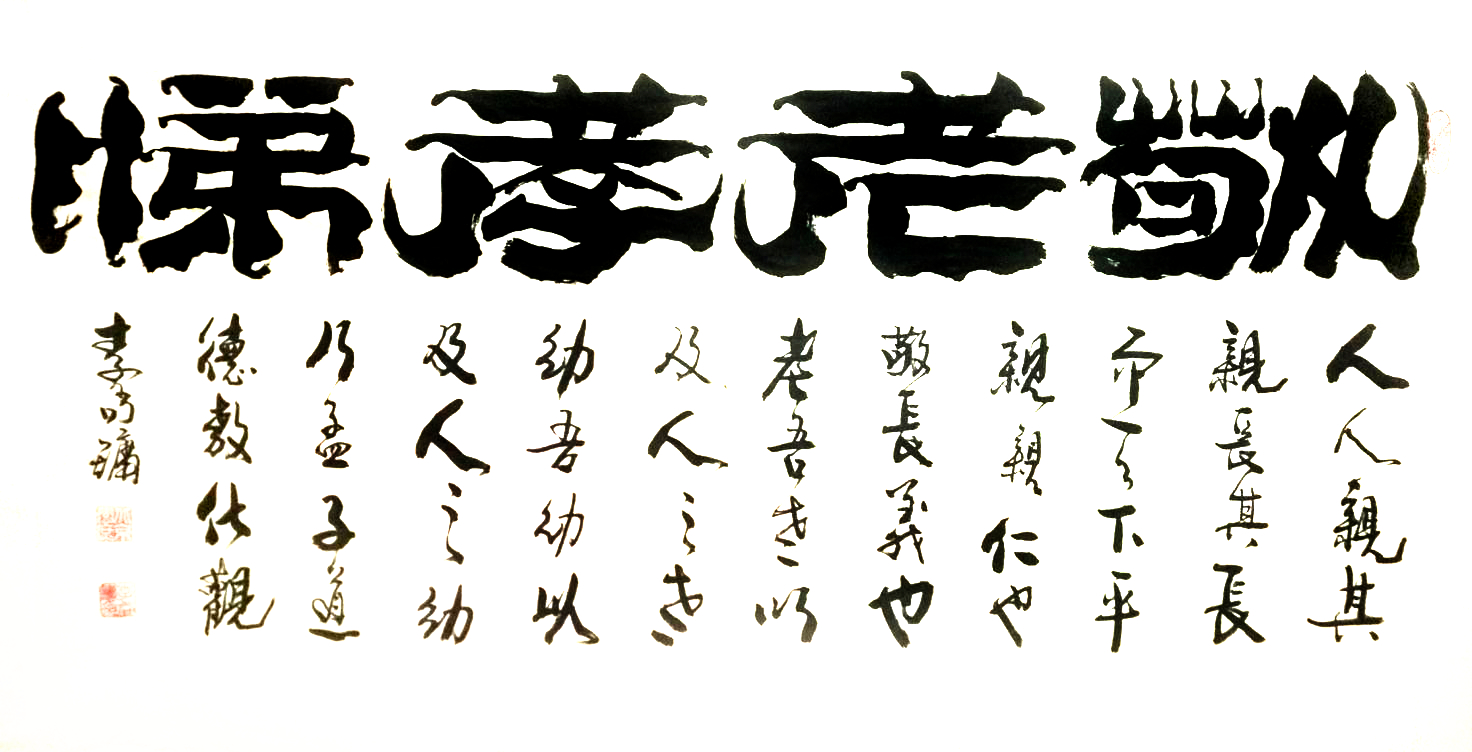 敬老孝悌
人人親其
親長其長
而天下平
親親仁也
敬長義也
老吾老以
及人之老
幼吾幼以
及人之幼
乃孟子道
德教化觀
李